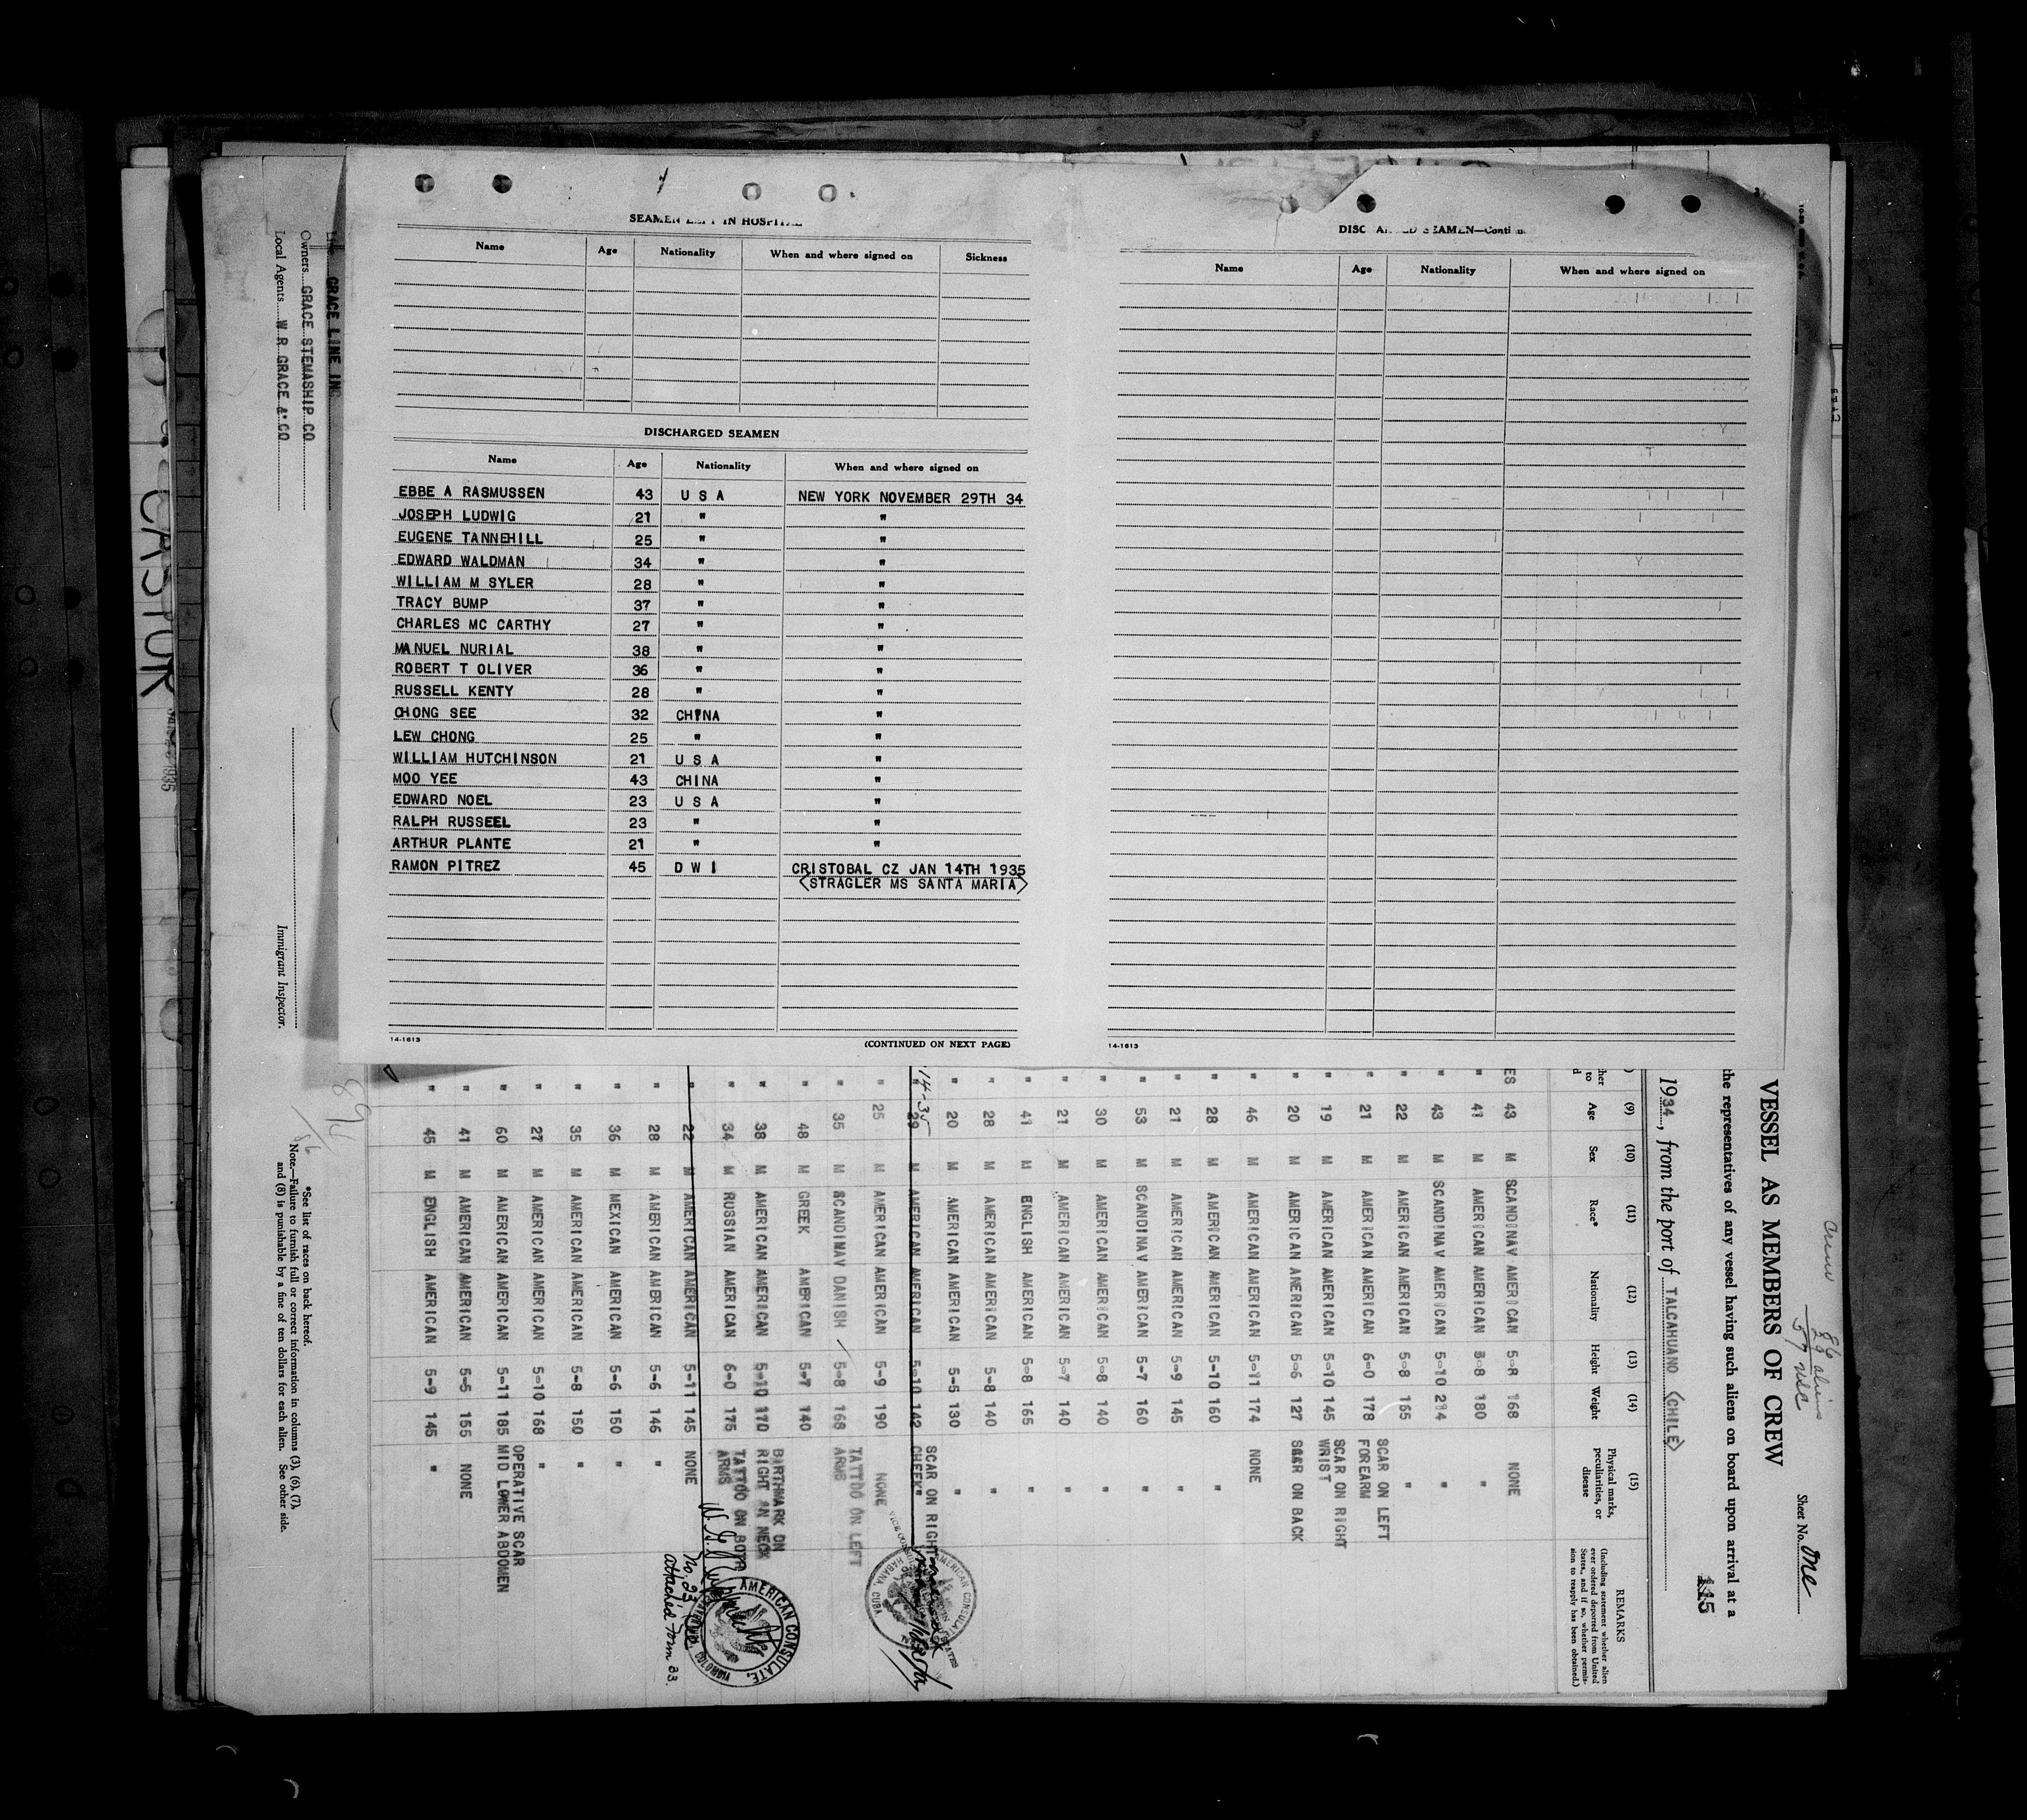 SEAMEN LEFT IN HOSPITAL
Name Age Nationality When and where signed on Sickness
DISCHARGED SEAMEN
Name Age Nationality When and where signed on
EBBE A RASMUSSEN 43 U S A NEW YORK NOVEMBER 29TH 34
JOSEPH LUDWIG 21 " "
EUGENE TANNEHILL 25 " "
EDWARD WALDMAN 34 " "
WILLIAM M SYLER 28 " "
TRACY BUMP 37 " "
CHARLES MC CARTHY 27 " "
MANUEL NURIAL 38 " "
ROBERT T OLIVER 36 " "
RUSSELL KENTY 28 " "
CHONG SEE 32 CHINA "
LEW CHONG 25 " "
WILLIAM HUTCHINSON 21 U S A "
MOO YEE 43 CHINA "
EDWARD NOEL 23 U S A "
RALPH RUSSEEL 23 " "
ARTHUR PLANTE 21 " "
RAMON PITREZ 45 D W I CRISTOBAL CZ JAN 14TH 1935
<STRAGLER MS SANTA MARIA>
14-1613
(CONTINUED ON NEXT PAGE)
DISCHARGED SEAMEN—Continu
Name Age Nationality When and where signed on
14-1613
VESSEL AS MEMBERS OF CREW
Sheet No. One
115
the representatives of any vessel having such aliens on board upon arrival at a
1934, from the port of TALCAHUANO <CHILE>
(9) (10) (11) (12) (13) (14) (15)
Age Sex Race* Nationality Height Weight Physical marks, peculiarities, or disease
REMARKS
(Including statement whether alien ever ordered deported from United States, and if so, whether permission to reapply has been obtained.)
ES 43 M SCANDINAV AMERICAN 5-8 168 NONE
" 41 M AMERICAN AMERICAN 5-8 180 "
" 43 M SCANDINAV AMERICAN 5-10 214 "
" 22 M AMERICAN AMERICAN 5-8 155 "
" 21 M AMERICAN AMERICAN 6-0 178 SCAR ON LEFT FOREARM
" 19 M AMERICAN AMERICAN 5-10 145 SCAR ON RIGHT WRIST
" 20 M AMERICAN AMERICAN 5-6 127 SCAR ON BACK
" 46 M AMERICAN AMERICAN 5-11 174 NONE
" 28 M AMERICAN AMERICAN 5-10 160 "
" 21 M AMERICAN AMERICAN 5-9 145 "
" 53 M SCANDINAV AMERICAN 5-7 160 "
" 30 M AMERICAN AMERICAN 5-8 140 "
" 21 M AMERICAN AMERICAN 5-7 140 "
" 41 M ENGLISH AMERICAN 5-8 165 "
" 28 M AMERICAN AMERICAN 5-8 140 "
" 20 M AMERICAN AMERICAN 5-5 130 "
" 29 M AMERICAN AMERICAN 5-10 142 SCAR ON RIGHT CHEEK"
" 25 M AMERICAN AMERICAN 5-9 190 NONE
" 35 M SCANDINAV DANISH 5-8 168 TATTOO ON LEFT ARMS
" 48 M GREEK AMERICAN 5-7 140
" 38 M AMERICAN AMERICAN 5-10 170 BIRTHMARK ON RIGHT IN NECK
" 34 M RUSSIAN AMERICAN 6-0 175 TATTOO ON BOTH ARMS
" 22 M AMERICAN AMERICAN 5-11 145 NONE
" 28 M AMERICAN AMERICAN 5-6 146 "
" 36 M MEXICAN AMERICAN 5-6 150 "
" 35 M AMERICAN AMERICAN 5-8 150 "
" 27 M AMERICAN AMERICAN 5-10 168 "
" 60 M AMERICAN AMERICAN 5-11 185 OPERATIVE SCAR MID LOWER ABDOMEN
" 41 M AMERICAN AMERICAN 5-5 155 NONE
" 45 M ENGLISH AMERICAN 5-9 145 "
AMERICAN CONSULATE
HABANA, CUBA
AMERICAN CONSULATE,
COLOMBIA
No. 23
attached Form 23.
GRACE LINE INC
Owners GRACE STEMASHIP CO
Local Agents W R GRACE & CO
Immigrant Inspector.
*See list of races on back hereof.
Note.—Failure to furnish full or correct information in columns (3), (6), (7),
and (8) is punishable by a fine of ten dollars for each alien. See other side.